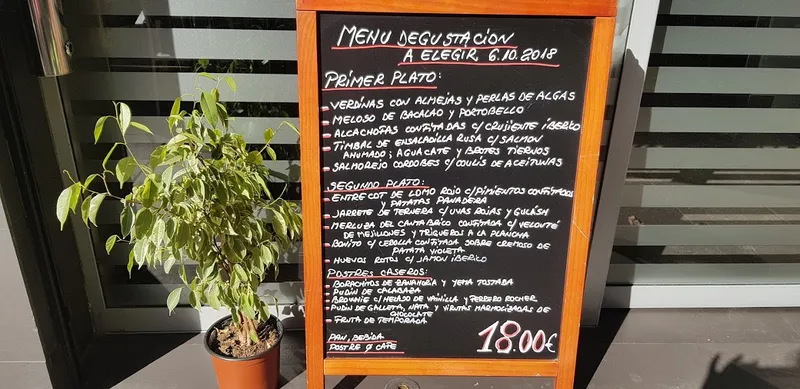 MENU DEGUSTACION
A ELEGIR 6.10.2018
PRIMER PLATO:
- VERDINAS CON ALMEJAS Y PERLAS DE ALGAS
- MELOSO DE BACALAO Y PORTOBELLO
- ALCACHOFAS CONFITADAS C/CRUJIENTE IBERICO
- TIMBAL DE ENSALADILLA RUSA C/SALMON
AHUMADO; AGUACATE Y BROTES TIERNOS
- SALMOREJO CORDOBES C/COULIS DE ACEITUNAS
SEGUNDO PLATO:
- ENTRECOT DE LOMO ROJO C/PIMIENTOS CONFITADOS
Y PATATAS PANADERA
- JARRETE DE TERNERA C/UVAS ROJAS Y GULASH
- MERLUZA DEL CANTABRICO CONFITADA C/VELOUTÉ
DE MEJILLONES Y TRIGUEROS A LA PLANCHA
- BONITO C/CEBOLLA CONFITADA SOBRE CREMOSO DE
PATATA VIOLETA
- HUEVOS ROTOS C/JAMON IBERICO
POSTRES CASEROS:
- BORRACHITOS DE ZANAHORIA Y YEMA TOSTADA
- PUDIN DE CALABAZA
- BROWNIE C/HELADO DE VAINILLA Y FERRERO ROCHER
- PUDIN DE GALLETA, NATA Y VIRUTAS MARMOLIZADAS DE
CHOCOLATE
- FRUTA DE TEMPORADA
PAN, BEBIDA
POSTRE O CAFE
18.00€